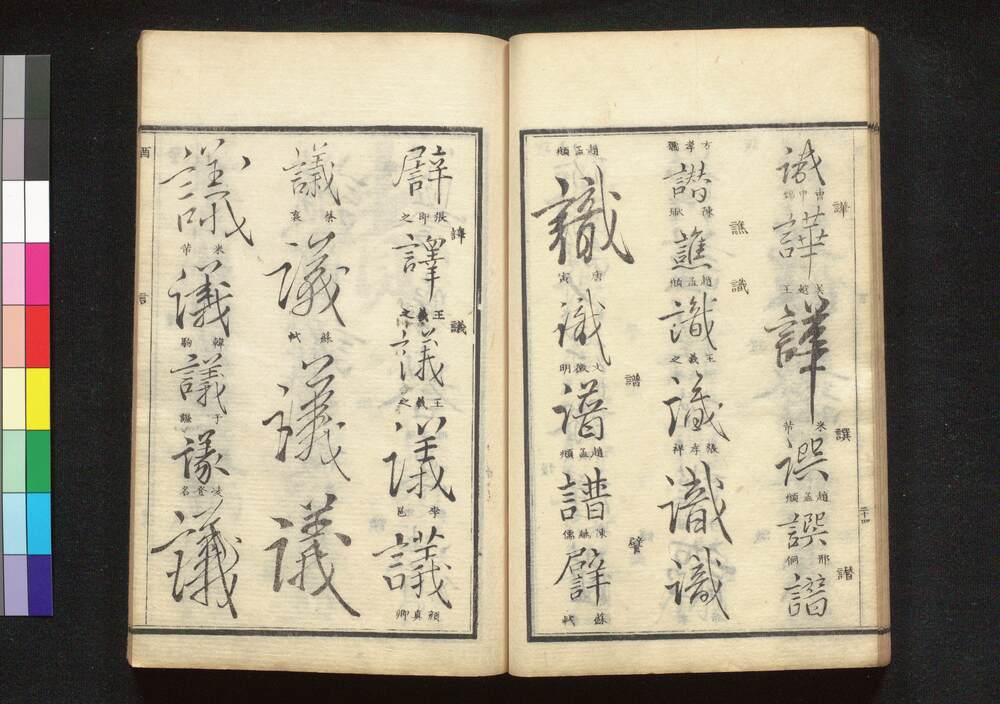 譁 譔 譖
譁 吳越王 譁 米芾 譔 趙孟頫 譔 邢侗 譖
譙 識
方孝孺 譖 陳獻 譙 趙孟頫 識 王羲之 識 張孝祥 識 識
譜 譬
趙孟頫 識 唐寅 識 文徵明 譜 趙孟頫 譜 陳繼儒 譬 蘇軾
譯 議
譬 張即之 譯 王羲之 議 王羲之 議 李邕 議 顏真卿
議 蔡襄 議 蘇軾 議 議
議 米芾 議 韓駒 議 于謙 議 凌登名 議
酉 言